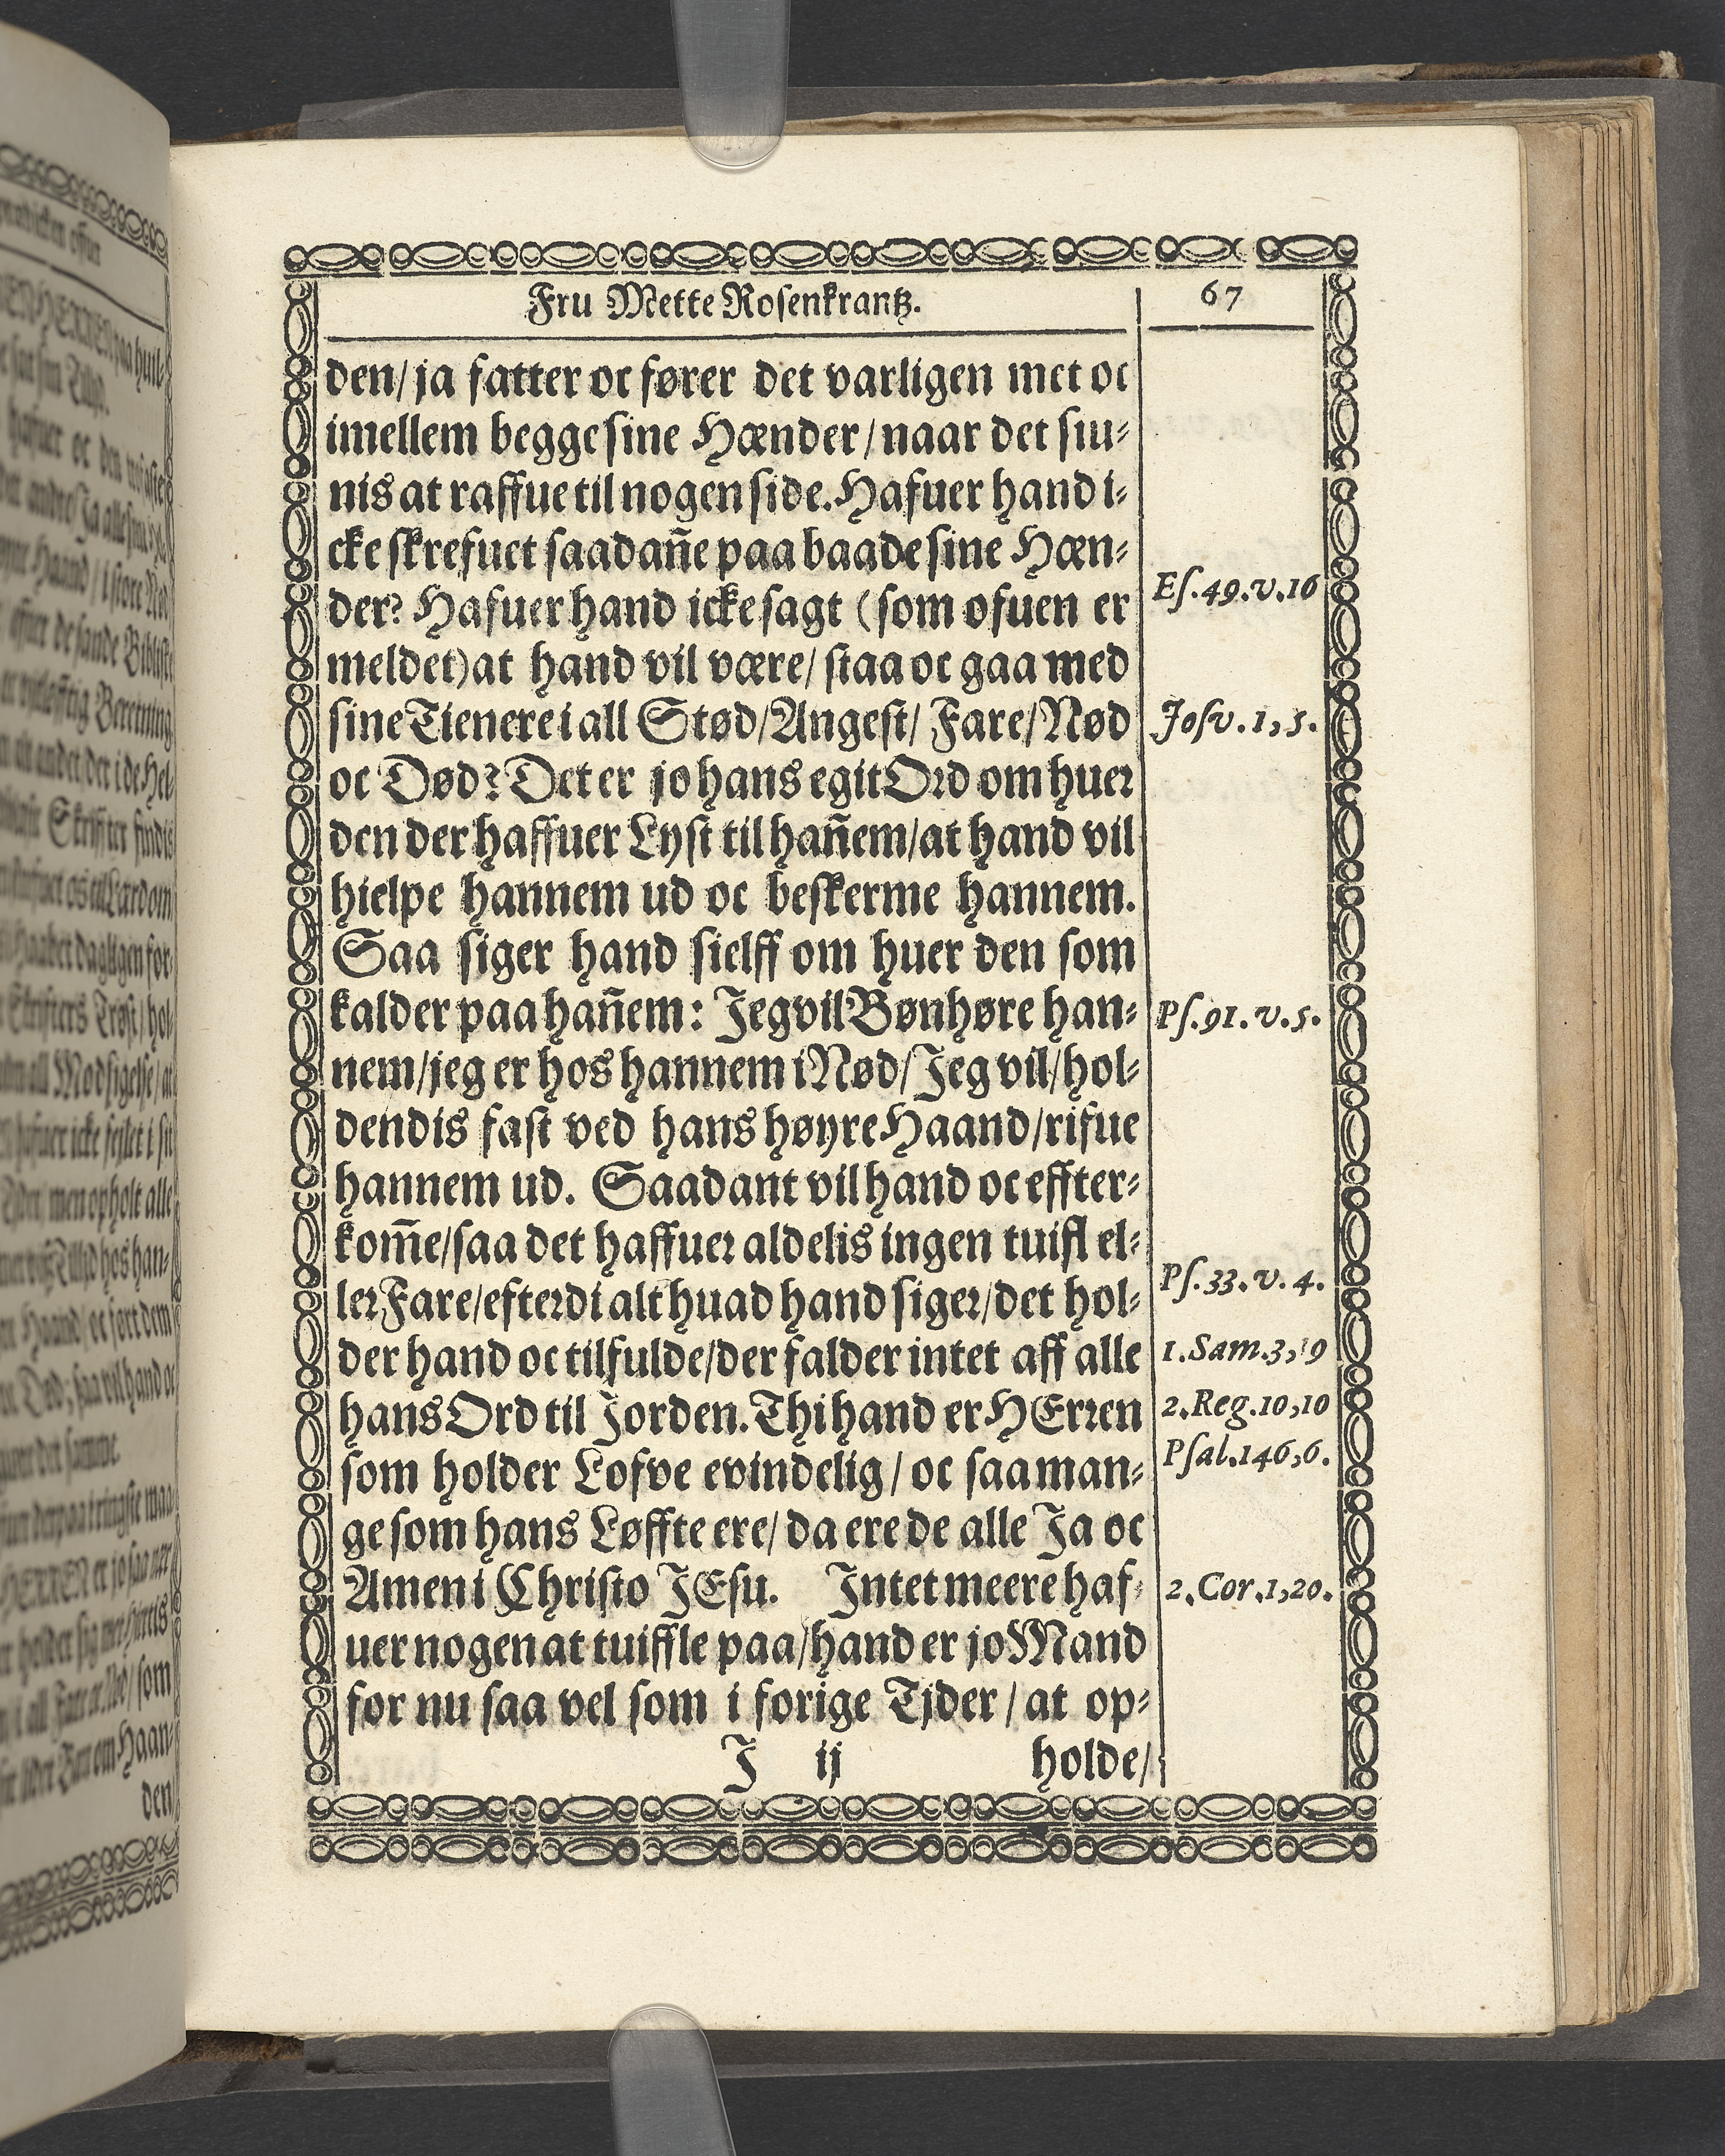 Fru Mette Rosenkrantz.
67
den/ ja fatter oc fører det varligen met oc
imellem begge sine Hænder/ naar det siu-
nis at raffue til nogen side. Hafuer hand i-
cke skrefuet saadañe paa baade sine Hæn-
der? Hafuer hand icke sagt (som ofuen er
Es. 49. v. 16
meldet) at hand vil være/ staa oc gaa med
sine Tienere i all Stød/ Angest/ Fare/ Nød
Josv. 1, 5.
oc Død? Det er jo hans egit Ord om huer
den der haffuer Lyst til hañem/ at hand vil
hielpe hannem ud oc beskerme hannem.
Saa siger hand sielff om huer den som
kalder paa hañem: Jeg vil Bønhøre han-
Ps. 91. v. 5.
nem/ jeg er hos hannem i Nød/ Jeg vil/ hol-
dendis fast ved hans høyre Haand/ rifue
hannem ud. Saadant vil hand oc effter-
kom̃e/ saa det haffuer aldelis ingen tuifl el-
ler Fare/ efterdi alt huad hand siger/ det hol-
Ps. 33. v. 4.
der hand oc tilfulde/ der falder intet aff alle
1. Sam. 3, 19
hans Ord til Jorden. Thi hand er HErren
2. Reg. 10, 10
som holder Lofve evindelig/ oc saa man-
Psal. 146, 6.
ge som hans Løffte ere/ da ere de alle Ja oc
Amen i Christo JEsu. Intet meere haf-
2. Cor. 1, 20.
uer nogen at tuiffle paa/ hand er jo Mand
for nu saa vel som i forige Tjder/ at op-
J ij
holde/